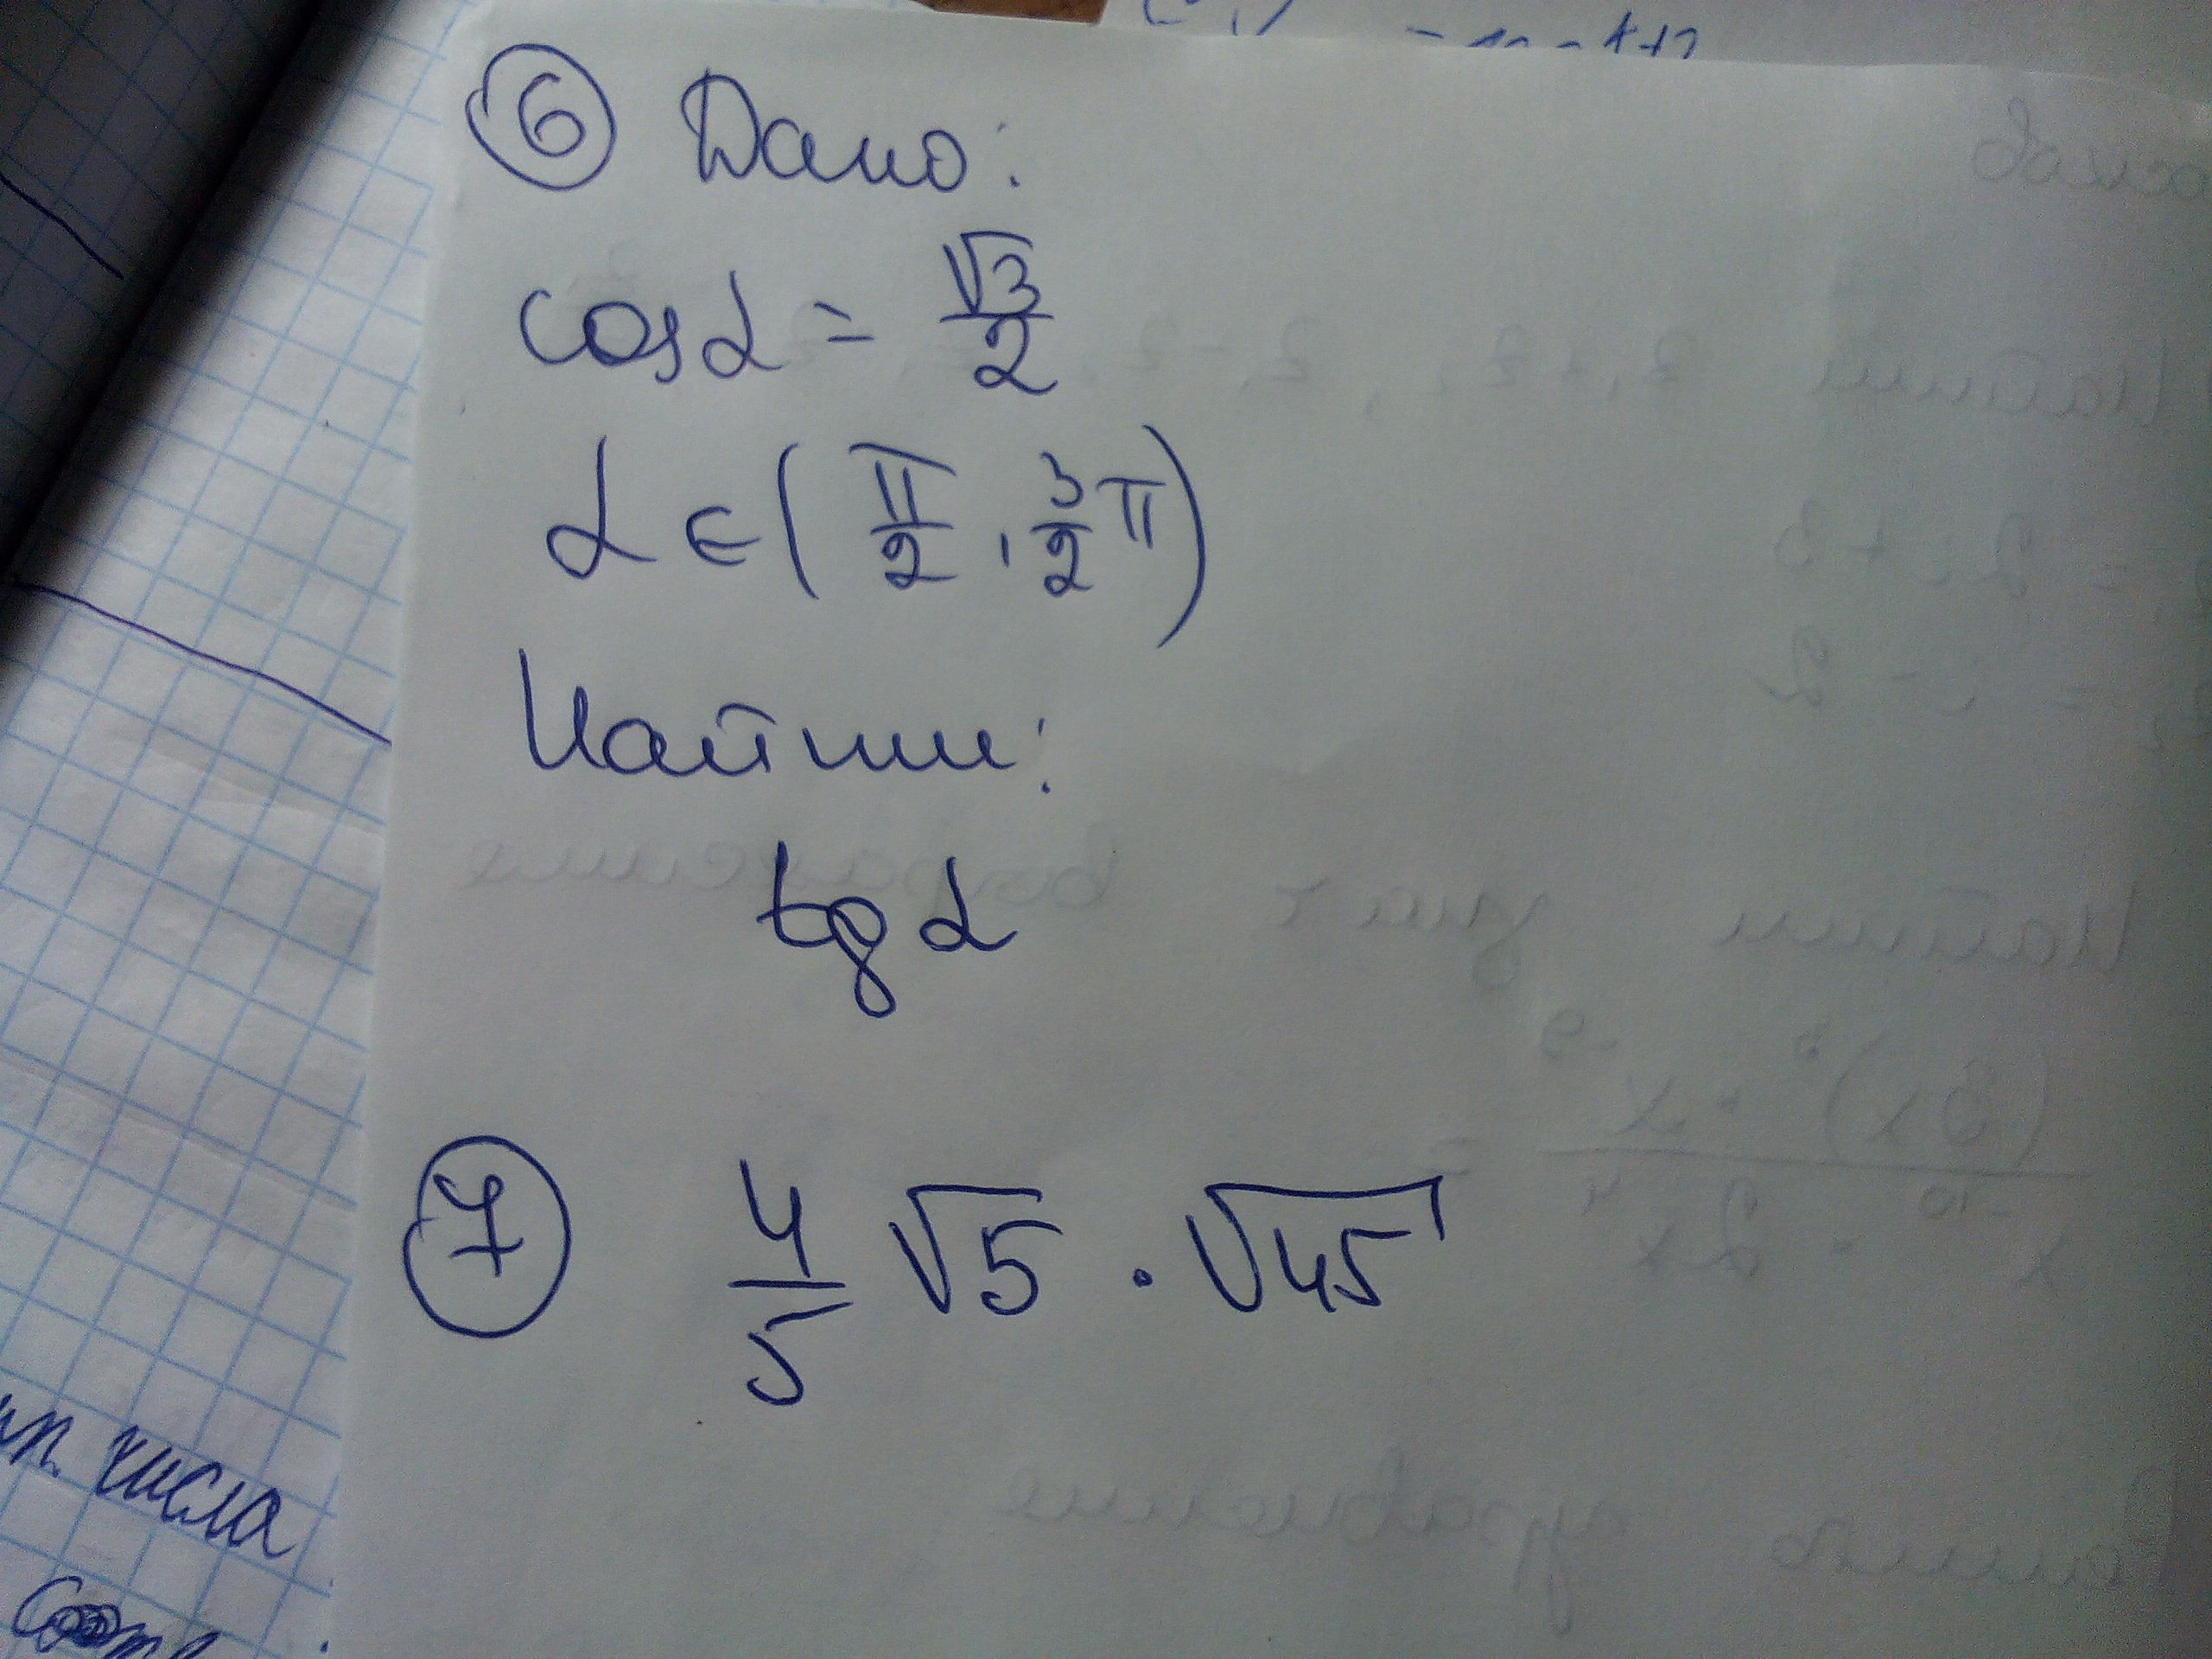 6 Дано:
cos α = √3/2
α ∈ (π/2, 3/2 π)
Найти:
tg α
7 4/5 √5 · √45
числа